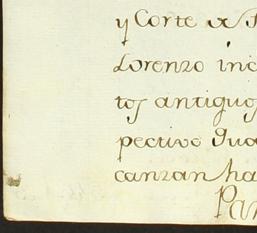 y Corte de S
Lorenzo inc
tos antiguos
pectivo Gua
canzan ha
Par